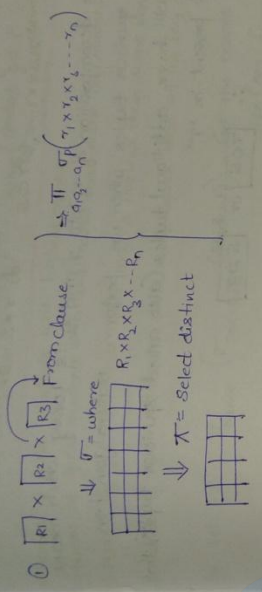 ① R1 × R2 × R3 From clause
⇓ σ = where
R₁ × R₂ × R₃ × --- Rₙ
⇓ π = Select distinct
⇒ π a₁a₂...aₙ σp (r₁ × r₂ × r₃ ---- rₙ)